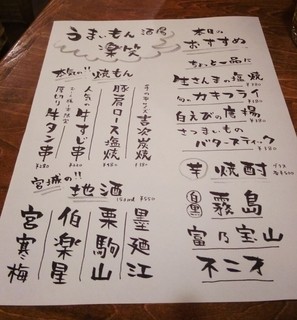 うまいもん 酒房
楽笑
本気の!!焼もん
本日の
おすすめ
ちょっと一品に
生さんまの塩焼
カキフライ
白えびの唐揚
さつまいもの
バタースティック
吉次炭焼
豚肩ロース塩焼
人気の牛すじ串
厚切り牛タン串
宮城の!!地酒
墨廼江
栗駒山
伯楽星
宮寒梅
芋焼酎
霧島
富乃宝山
不二才